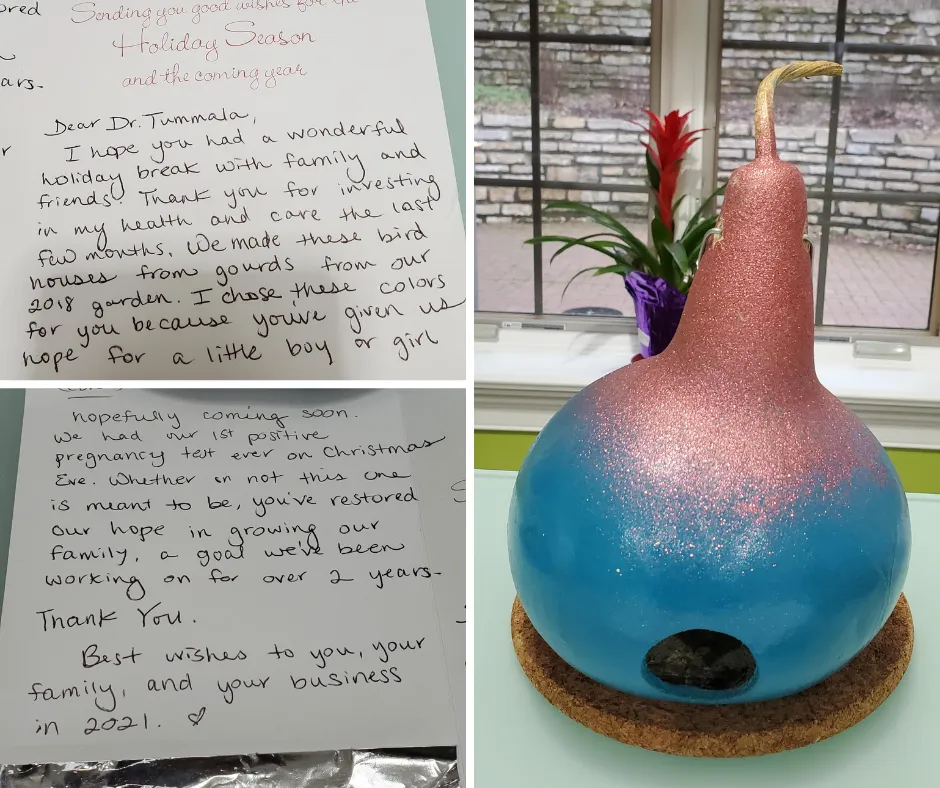 ored
ars.
r
Sending you good wishes for the
Holiday Season
and the coming year
Dear Dr. Tummala,
I hope you had a wonderful
holiday break with family and
friends! Thank you for investing
in my health and care the last
few months. We made these bird
houses from gourds from our
2018 garden. I chose these colors
for you because you've given us
hope for a little boy or girl
hopefully coming soon.
We had our 1st positive
pregnancy test ever on Christmas
Eve. Whether or not this one
is meant to be, you've restored
our hope in growing our
family, a goal we've been
working on for over 2 years.
Thank You.
Best wishes to you, your
family, and your business
in 2021. ♡